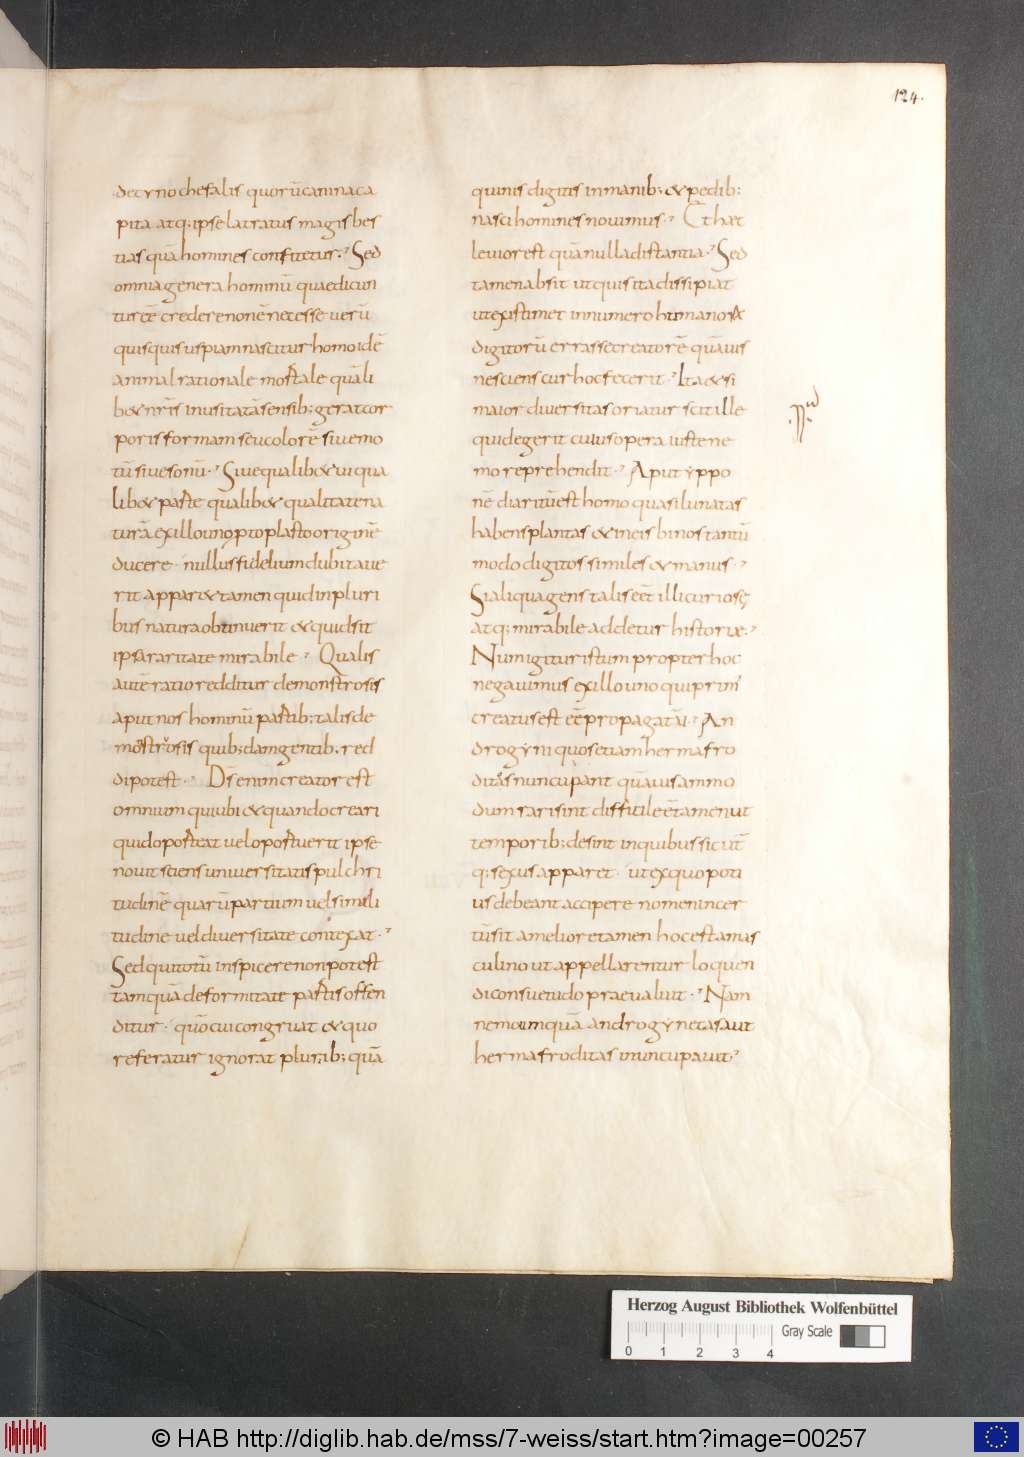 124.
decynochefalis quorū canina ca
pita atq; ipse latratus magis bes
tias quā homines confitetur. Sed
omnia genera hominū quae dicun
tur eē credere non ē necesse verū
quisquis uspiam nascitur homo id ē
animal rationale mortale quāli
b& nr̄is inusitatā sensib; gerat cor
poris formam seu colorē sive mo
tū sive sonū. Sive qualib& vi qua
lib& parte qualib& qualitate na
turā ex illo uno protoplasto originē
ducere. nullus fidelium dubitave
rit appar& tamen quid in pluri
bus natura obtinuerit & quid sit
ipsa raritate mirabile. Qualis
autē ratio redditur demonstrosis
aput nos hominū partib; talis de
monstrosis quib; dam gentib; red
di potest. Ds̄ enim creator est
omnium qui ubi & quando creari
quid oporteat vel oportuerit ipse
novit sciens universitatis pulchri
tudinē quarū partium vel simili
tudine vel diversitate contexat.
Sed qui totū inspicere non potest
tamquā deformitate partis offen
ditur. quō cui congruat & quo
referatur ignorat plurib; quā
quinis digitis in manib; & pedib;
nasci homines novimus. Et haec
levior est quā nulla distantia. Sed
tamen absit ut quis ita dissipiat
ut existimet in numero humanorum
digitorū errasse creatorē quāvis
nesciens cur hoc fecerit. Ita & si
maior diversitas oriatur scit ille
quid egerit cuius opera iuste ne
mo reprehendit. Aput yppo
nē diaritū est homo quasi lunatas
habens plantas & in eis binos tantū
modo digitos similes & manus.
Si aliqua gens talis eēt illi curiosę
atq; mirabile adderetur historiæ.
Num igitur istum propter hoc
negavimus ex illo uno qui prim'
creatus est eē propagatā. An
drogyni quos etiam hermafro
ditas nuncupant quāvis ammo
dum rari sint difficile ē tamen ut
temporib; desint in quibus sic ut
q; sexus apparet. ut ex quo poti
us debeant accipere nomen incer
tū sit a meliore tamen hoc est a mas
culino ut appellarentur loquen
di consuetudo praevaluit. Nam
nemo umquā androgynetas aut
hermafroditas nuncupavit.
Herzog August Bibliothek Wolfenbüttel
Gray Scale
0 1 2 3 4
© HAB http://diglib.hab.de/mss/7-weiss/start.htm?image=00257